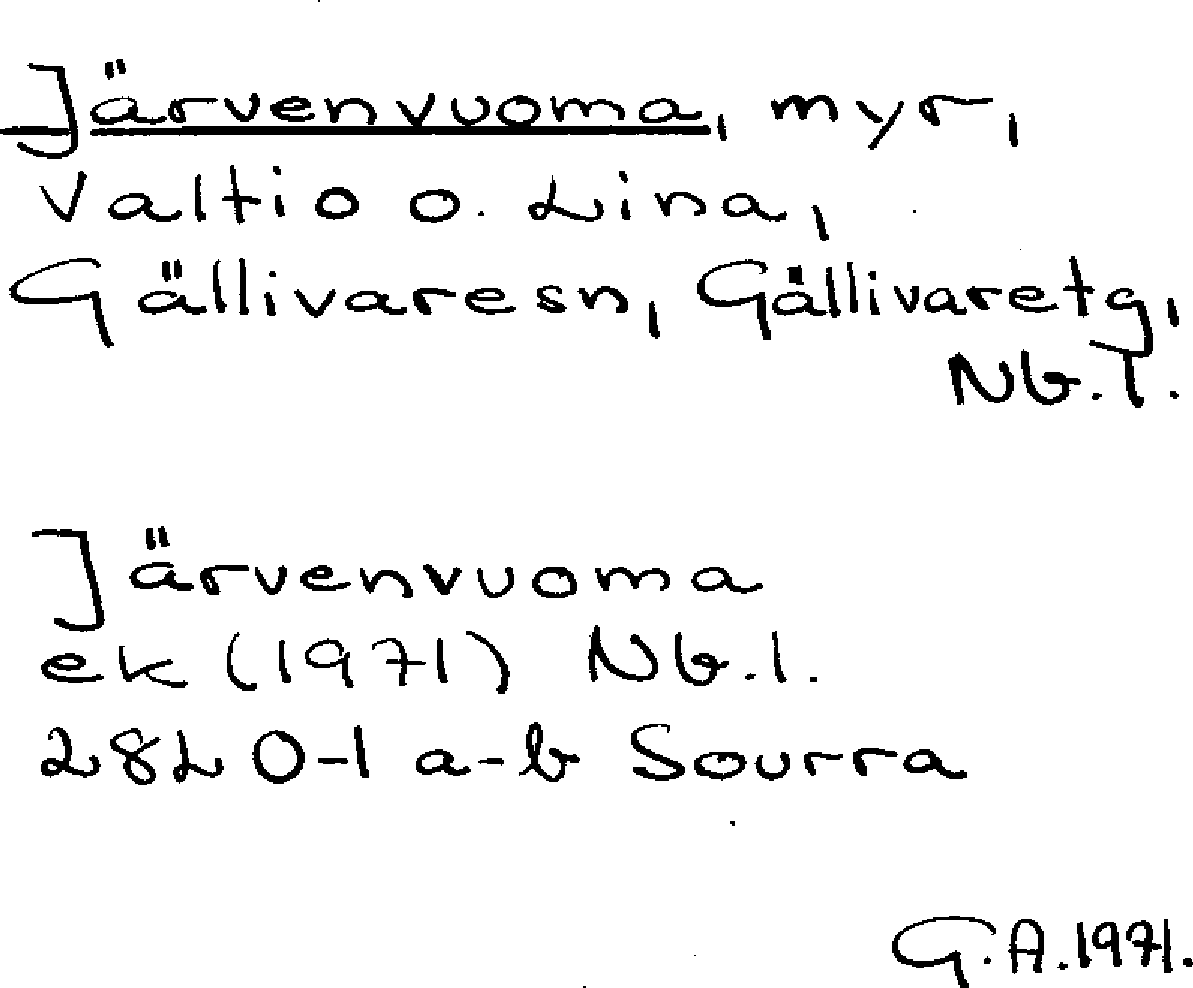 Järvenvuoma, myr,
Valtio o. Lina,
Gällivaresn, Gällivaretg,
Nb.l.
Järvenvuoma
ek (1971) Nb.l.
28L 0-1 a-b Sourra
G.A.1971.